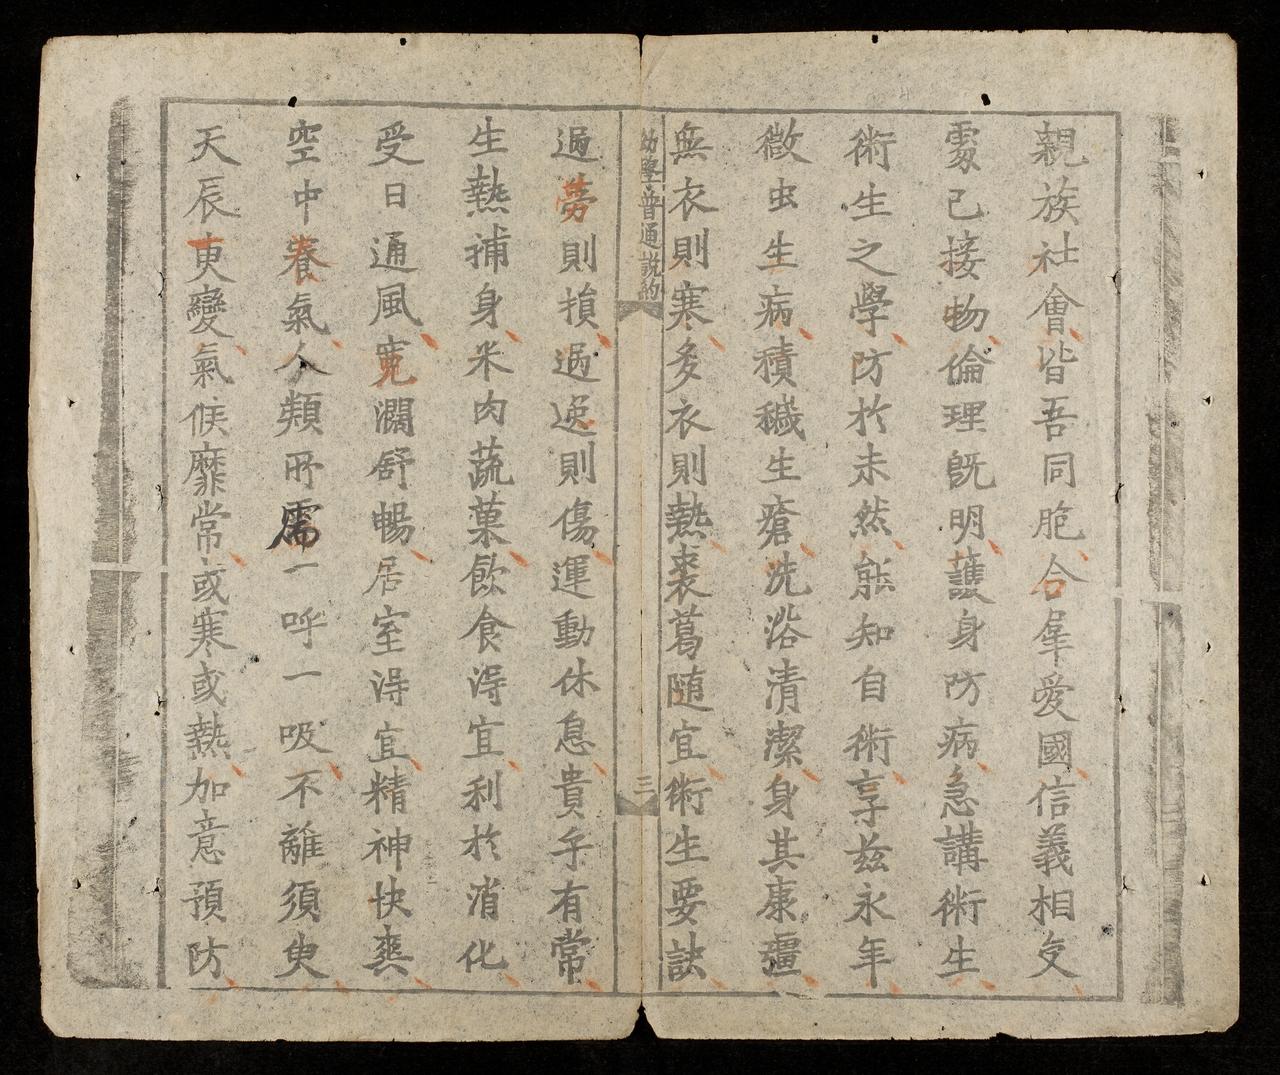 親族社會皆吾同胞合羣愛國信義相交
處己接物倫理既明護身防病急講術生
術生之學防於未然能知自術享玆永年
微虫生病積穢生瘡洗浴清潔身其康彊
無衣則寒多衣則熱裘葛随宜術生要訣
幼學普通説約
三
過勞則損過逸則傷運動休息貴乎有常
生熱補身米肉蔬菓飲食淂宜利於消化
受日通風寬濶舒暢居室淂宜精神快爽
空中養氣人類所需一呼一吸不離須臾
天辰更變氣候靡常或寒或熱加意預防